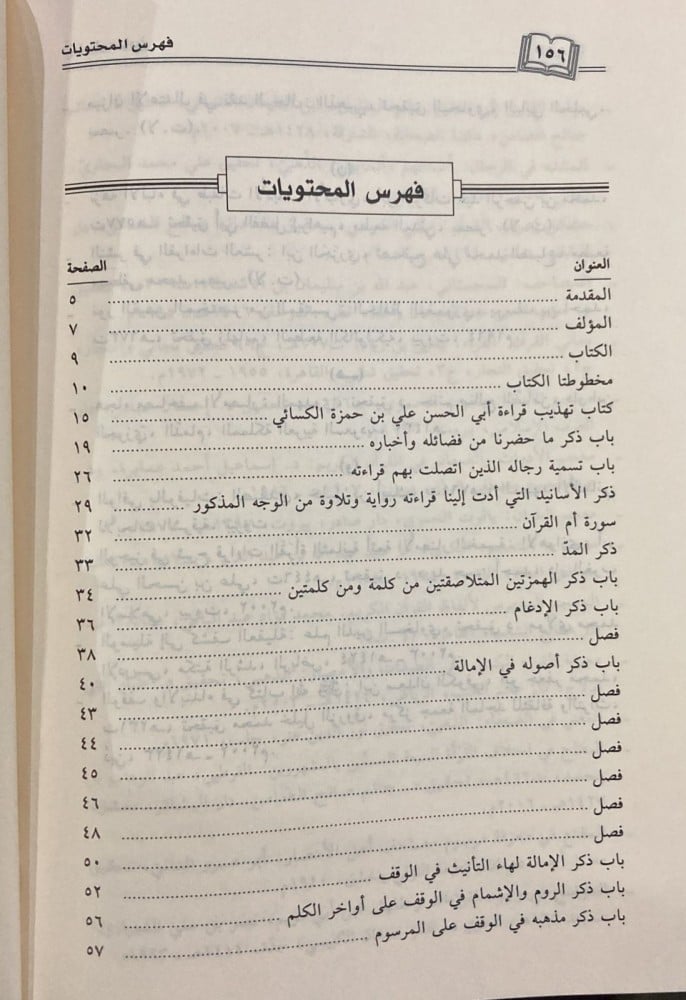 ١٥٦ فهرس المحتويات
فهرس المحتويات
العنوان الصفحة
المقدمة ٥
المؤلف ٧
الكتاب ٩
مخطوطتا الكتاب ١٠
كتاب تهذيب قراءة أبي الحسن علي بن حمزة الكسائي ١٥
باب ذكر ما حضرنا من فضائله وأخباره ١٩
باب تسمية رجاله الذين اتصلت بهم قراءته ٢٦
ذكر الأسانيد التي أدت إلينا قراءته رواية وتلاوة من الوجه المذكور ٢٩
سورة أم القرآن ٣٢
ذكر المدّ ٣٣
باب ذكر الهمزتين المتلاصقتين من كلمة ومن كلمتين ٣٤
باب ذكر الإدغام ٣٦
فصل ٣٨
باب ذكر أصوله في الإمالة ٤٠
فصل ٤٣
فصل ٤٤
فصل ٤٥
فصل ٤٦
فصل ٤٨
فصل ٥٠
باب ذكر الإمالة لهاء التأنيث في الوقف ٥٢
باب ذكر الروم والإشمام في الوقف على أواخر الكلم ٥٦
باب ذكر مذهبه في الوقف على المرسوم ٥٧